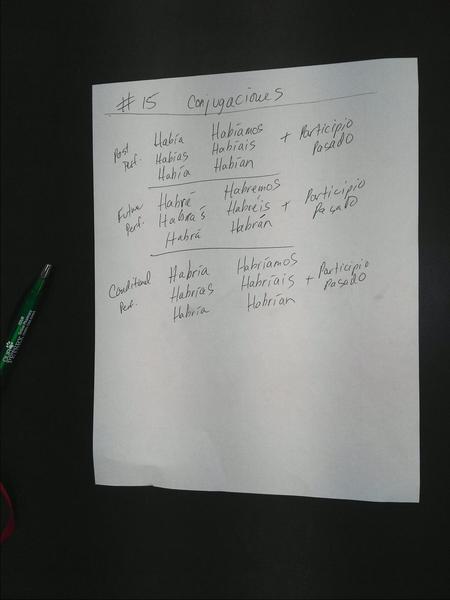 # 15 Conjugaciones
Past Perf.
Había Habíamos
Habías Habíais
Había Habían
+ Participio Pasado
Future Perf.
Habré Habremos
Habrás Habréis
Habrá Habrán
+ Participio Pasado
Conditional Perf.
Habría Habríamos
Habrías Habríais
Habría Habrían
+ Participio Pasado